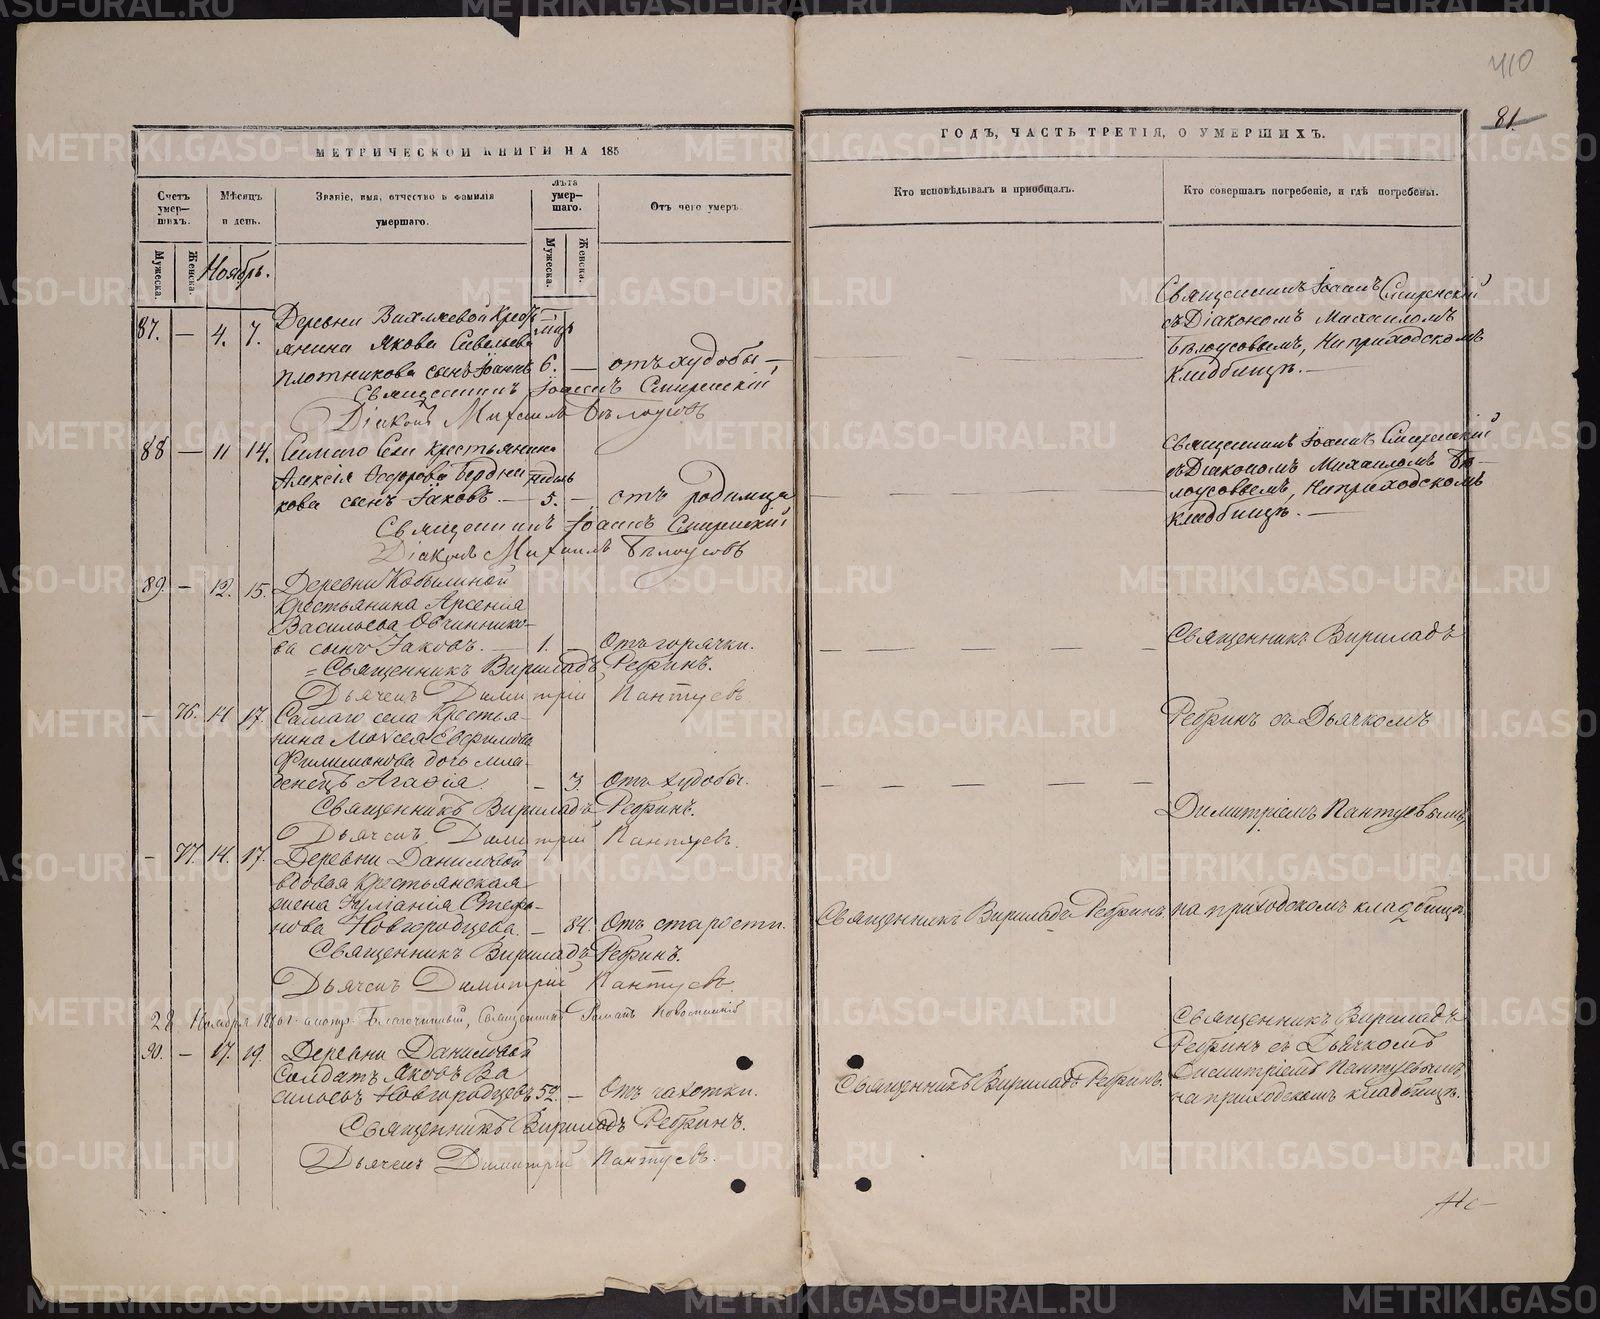 410
81.
МЕТРИЧЕСКОЙ КНИГИ НА 185
ГОДЪ, ЧАСТЬ ТРЕТІЯ, О УМЕРШИХЪ.
Счетъ умер-шихъ.
Мѣсяцъ и день.
Званіе, имя, отчество и фамилія умершаго.
Лѣта умер-шаго.
Отъ чего умеръ
Кто исповѣдывалъ и пріобщалъ.
Кто совершалъ погребеніе, и гдѣ погребены.
Мужеска.
Женска.
Ноябрь.
Мужеска.
Женска.
87. — 4. 7. Деревни Вихляевой Кресть
янина Якова Савельева
Плотникова сынъ Іоаннъ 6. — отъ худобы —
Священникъ Іоаннъ Смиренскій
Діаконъ Михаилъ Бѣлоусовъ
Священникъ Іоаннъ Смиренскій
съ Діакономъ Михаиломъ
Бѣлоусовымъ, На приходскомъ
Кладбищѣ. —
88 — 11 14. Самаго Села крестьянина
Алексія Ѳедорова Бердни
кова сынъ Іаковъ. — 5. — отъ родимца
Священникъ Іоаннъ Смиренскій
Діаконъ Михаилъ Бѣлоусовъ
Священникъ Іоаннъ Смиренскій
съ Діакономъ Михаиломъ Бѣ-
лоусовымъ, На приходскомъ
Кладбищѣ. —
89. — 12. 15. Деревни Кобылиной
Крестьянина Арсенія
Васильева Овчиннико-
ва сынъ Іаковъ. — 1. Отъ горячки.
Священникъ Вириладъ Ребринъ.
Дьячекъ Димитрій Пантуевъ
Священникъ Вириладъ
— 76. 14 17. Самаго села Крестья-
нина Моѵсея
Филимонова дочь мла-
денецъ Агафія. — 3. Отъ худобы.
Священникъ Вириладъ Ребринъ.
Дьячекъ Димитрій Пантуевъ.
Ребринъ съ Дьячкомъ
Димитріемъ Пантуевымъ,
— 77. 14. 17. Деревни Даниловой
вдовая Крестьянская
жена Стефа-
нова Новгородцева. — 84. Отъ старости.
Священникъ Вириладъ Ребринъ.
Дьячекъ Димитрій Пантуевъ.
Священникъ Вириладъ Ребринъ
на приходскомъ кладбищѣ.
28 Ноября Благочинный, Священникъ Романъ
90. — 17. 19. Деревни Даниловой
Солдатъ Яковъ Ва
сильевъ Новгородцевъ 52. — Отъ чахотки.
Священникъ Вириладъ Ребринъ.
Дьячекъ Димитрій Пантуевъ.
Священникъ Вириладъ Ребринъ.
Священникъ Вириладъ
Ребринъ съ Дьячкомъ
Димитріемъ Пантуевымъ,
на приходскомъ кладбищѣ.
METRIKI.GASO-URAL.RU